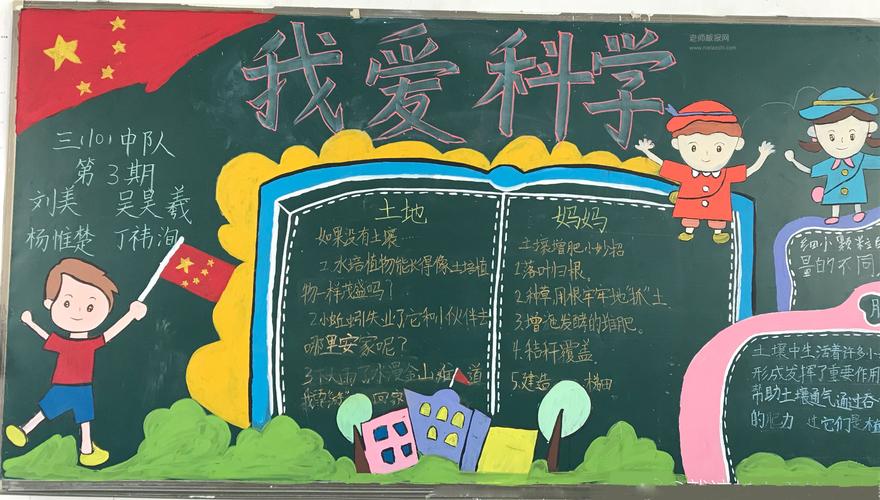 我爱科学
老师板报网
三(10)中队
第3期
刘美 吴昊羲
杨惟楚 丁祎洵
土地
如果没有土壤……
1.水培植物能长得像土培植
物一样茂盛吗?
2.小蚯蚓失业了它和小伙伴去
哪里安家呢?
3.下大雨了水漫金山 道
妈妈
土壤增肥小妙招
1.落叶归根。
2.种草用根牢牢地“抓”土
3.增施发酵的堆肥。
4.秸秆覆盖
5.建造 梯田
细小颗粒
量的不同
土壤中生活着许多小
形成发挥了重要作用
帮助土壤通气通过吞
的肥力 过它们是